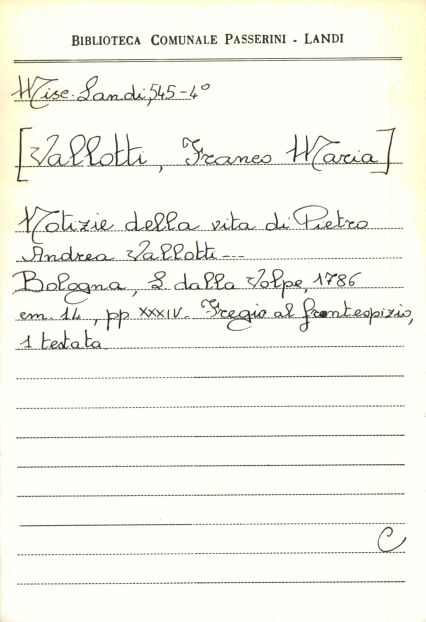 BIBLIOTECA COMUNALE PASSERINI - LANDI
Misc. Landi, 545-4°
[Vallotti, Franco Maria]
Notizie della vita di Pietro
Andrea Vallotti ---
Bologna, L. dalla Volpe, 1786
cm. 14, pp XXXIV. Fregio al frontespizio,
1 testata
C